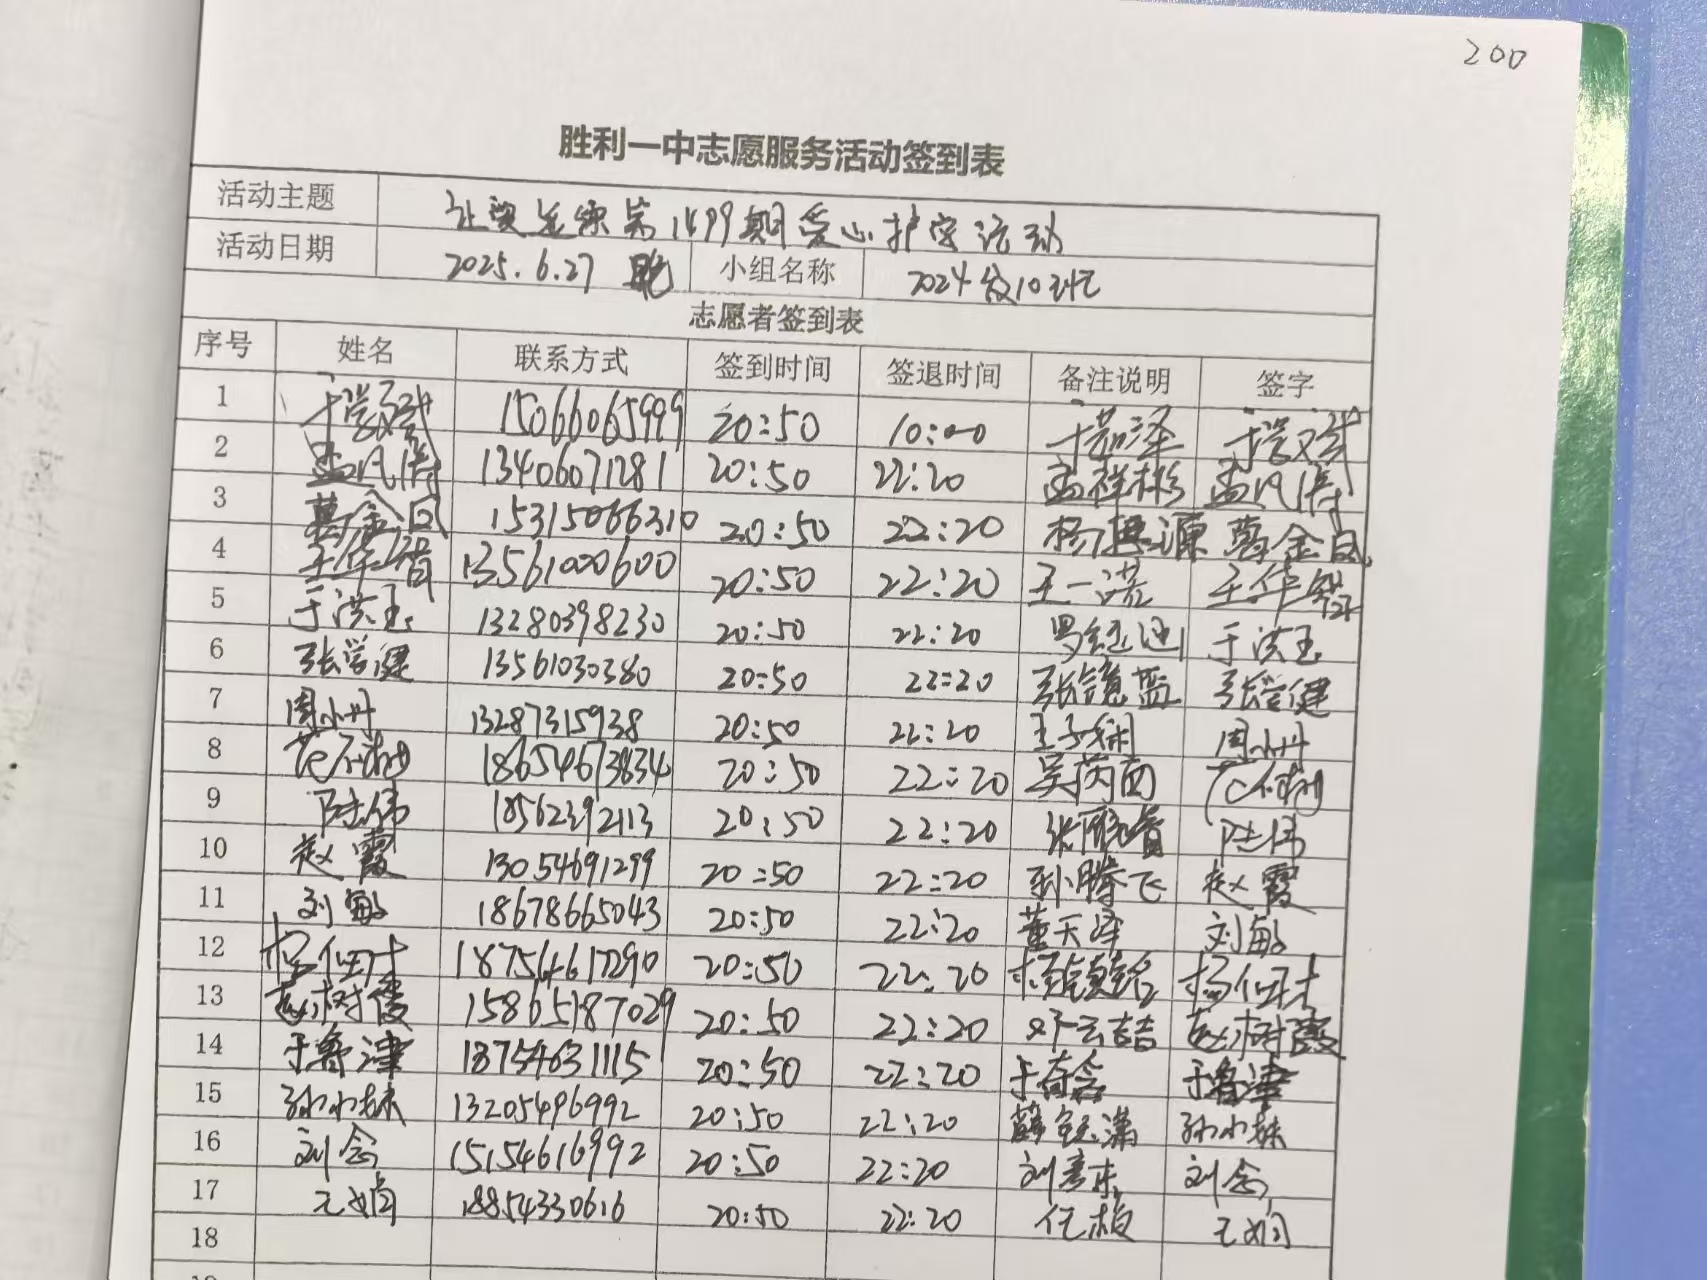 200
胜利一中志愿服务活动签到表
活动主题 让爱延续第1499期爱心护学活动
活动日期 2025.6.27 晚 小组名称 2024级10班
志愿者签到表
序号 姓名 联系方式 签到时间 签退时间 备注说明 签字
1 15066065999 20:50 10:00
2 孟凡涛 13406071281 20:50 22:20 孟祥彬 孟凡涛
3 葛金凤 15315066310 20:50 22:20 杨 源 葛金凤
4 13561000600 20:50 22:20 王一诺
5 于洪玉 13280398230 20:50 22:20 于洪玉
6 张学健 13561030380 20:50 22:20 张 蓝 张学健
7 周小丹 13287315938 20:50 22:20 周小丹
8 18654673834 20:50 22:20 吴芮西
9 陆伟 18562392113 20:50 22:20 陆伟
10 赵霞 13054691299 20:50 22:20 孙腾飞 赵霞
11 刘敏 18678665043 20:50 22:20 董天泽 刘敏
12 18754617290 20:50 22:20
13 赵树霞 15865187029 20:50 22:20 赵树霞
14 于春津 18754631115 20:50 22:20 于春津
15 孙小妹 13205496992 20:50 22:20 薛钰潇 孙小妹
16 刘念 15154616992 20:50 22:20 刘彦东 刘念
17 18854330616 20:50 22:20
18